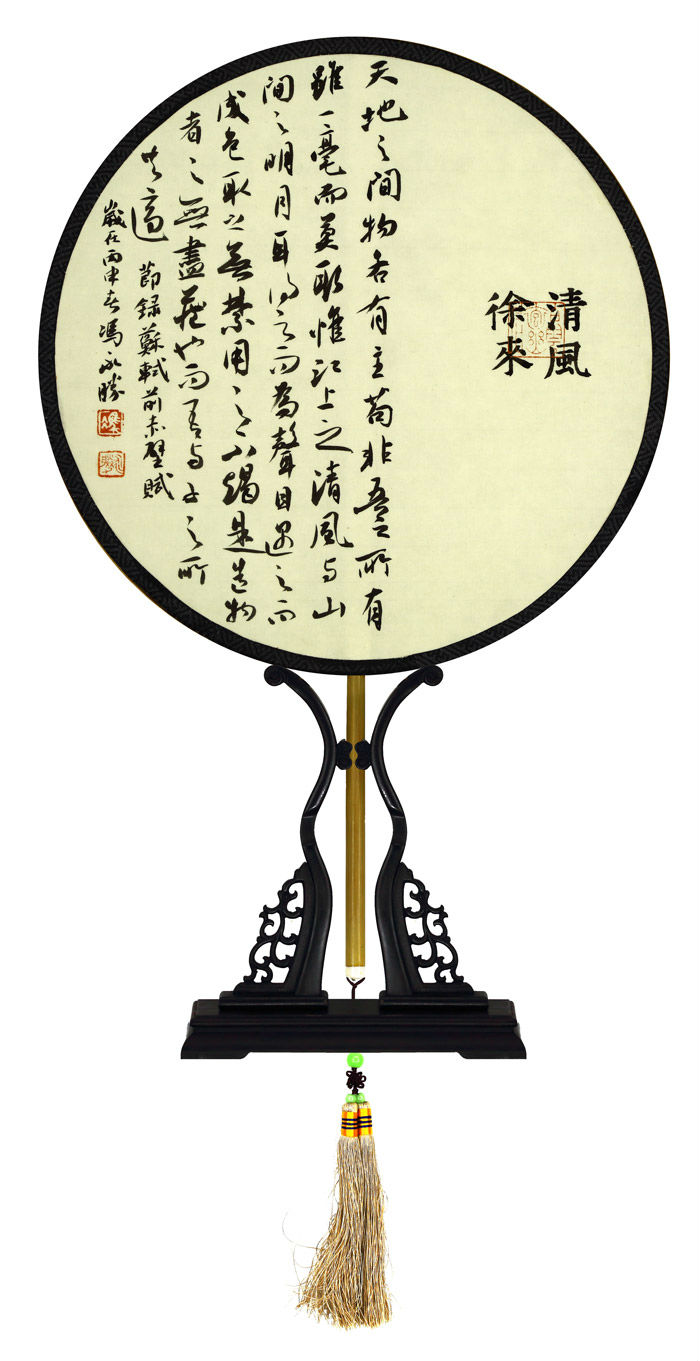 清風
徐來
天地之間物各有主苟非吾之所有
雖一毫而莫取惟江上之清風与山
間之明月耳得之而為聲目遇之而
成色取之無禁用之不竭是造物
者之無盡藏也而吾与子之所
共適
節録蘇軾前赤壁賦
歲在丙申春馮永勝